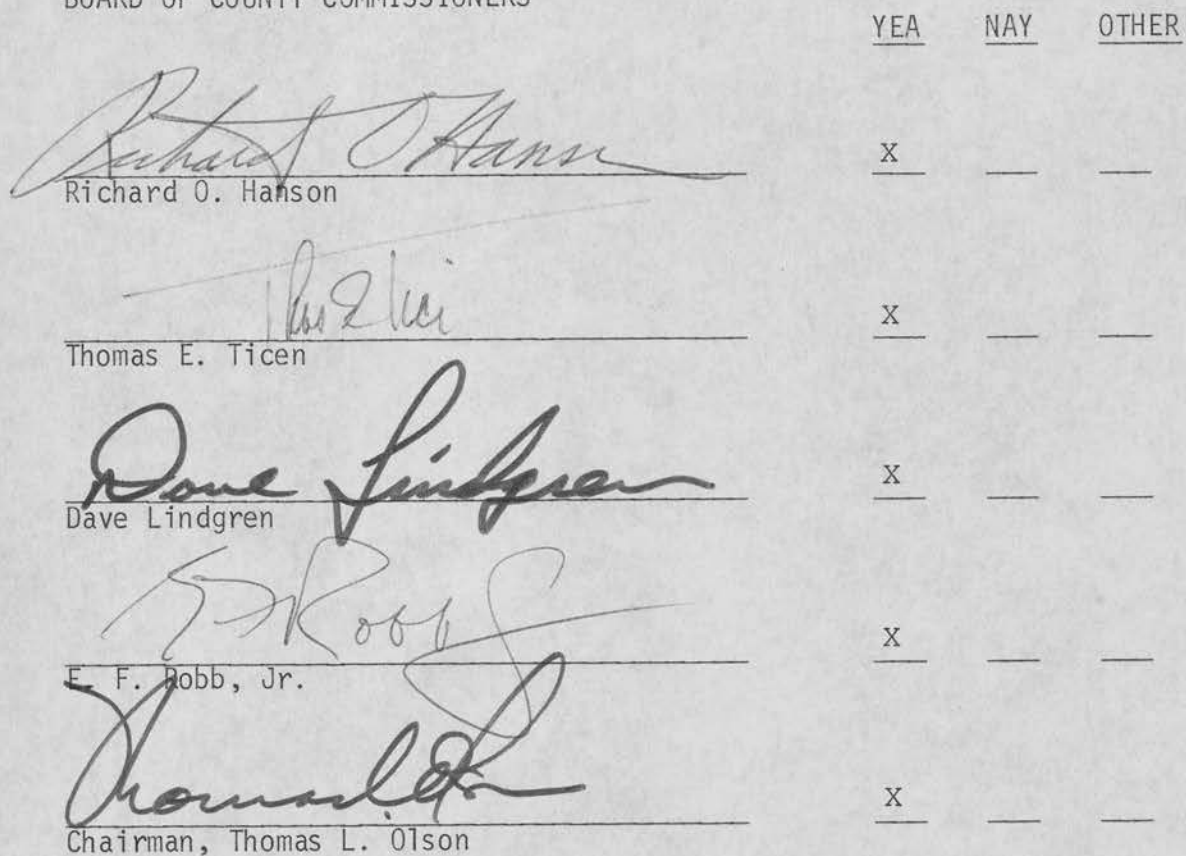 BOARD OF COUNTY COMMISSIONERS
YEA NAY OTHER
Richard O Hanson
X
Richard O. Hanson
Thos E Tici
X
Thomas E. Ticen
Dave Lindgren
X
Dave Lindgren
E F Robb Jr
X
E. F. Robb, Jr.
Thomas L. Olson
X
Chairman, Thomas L. Olson